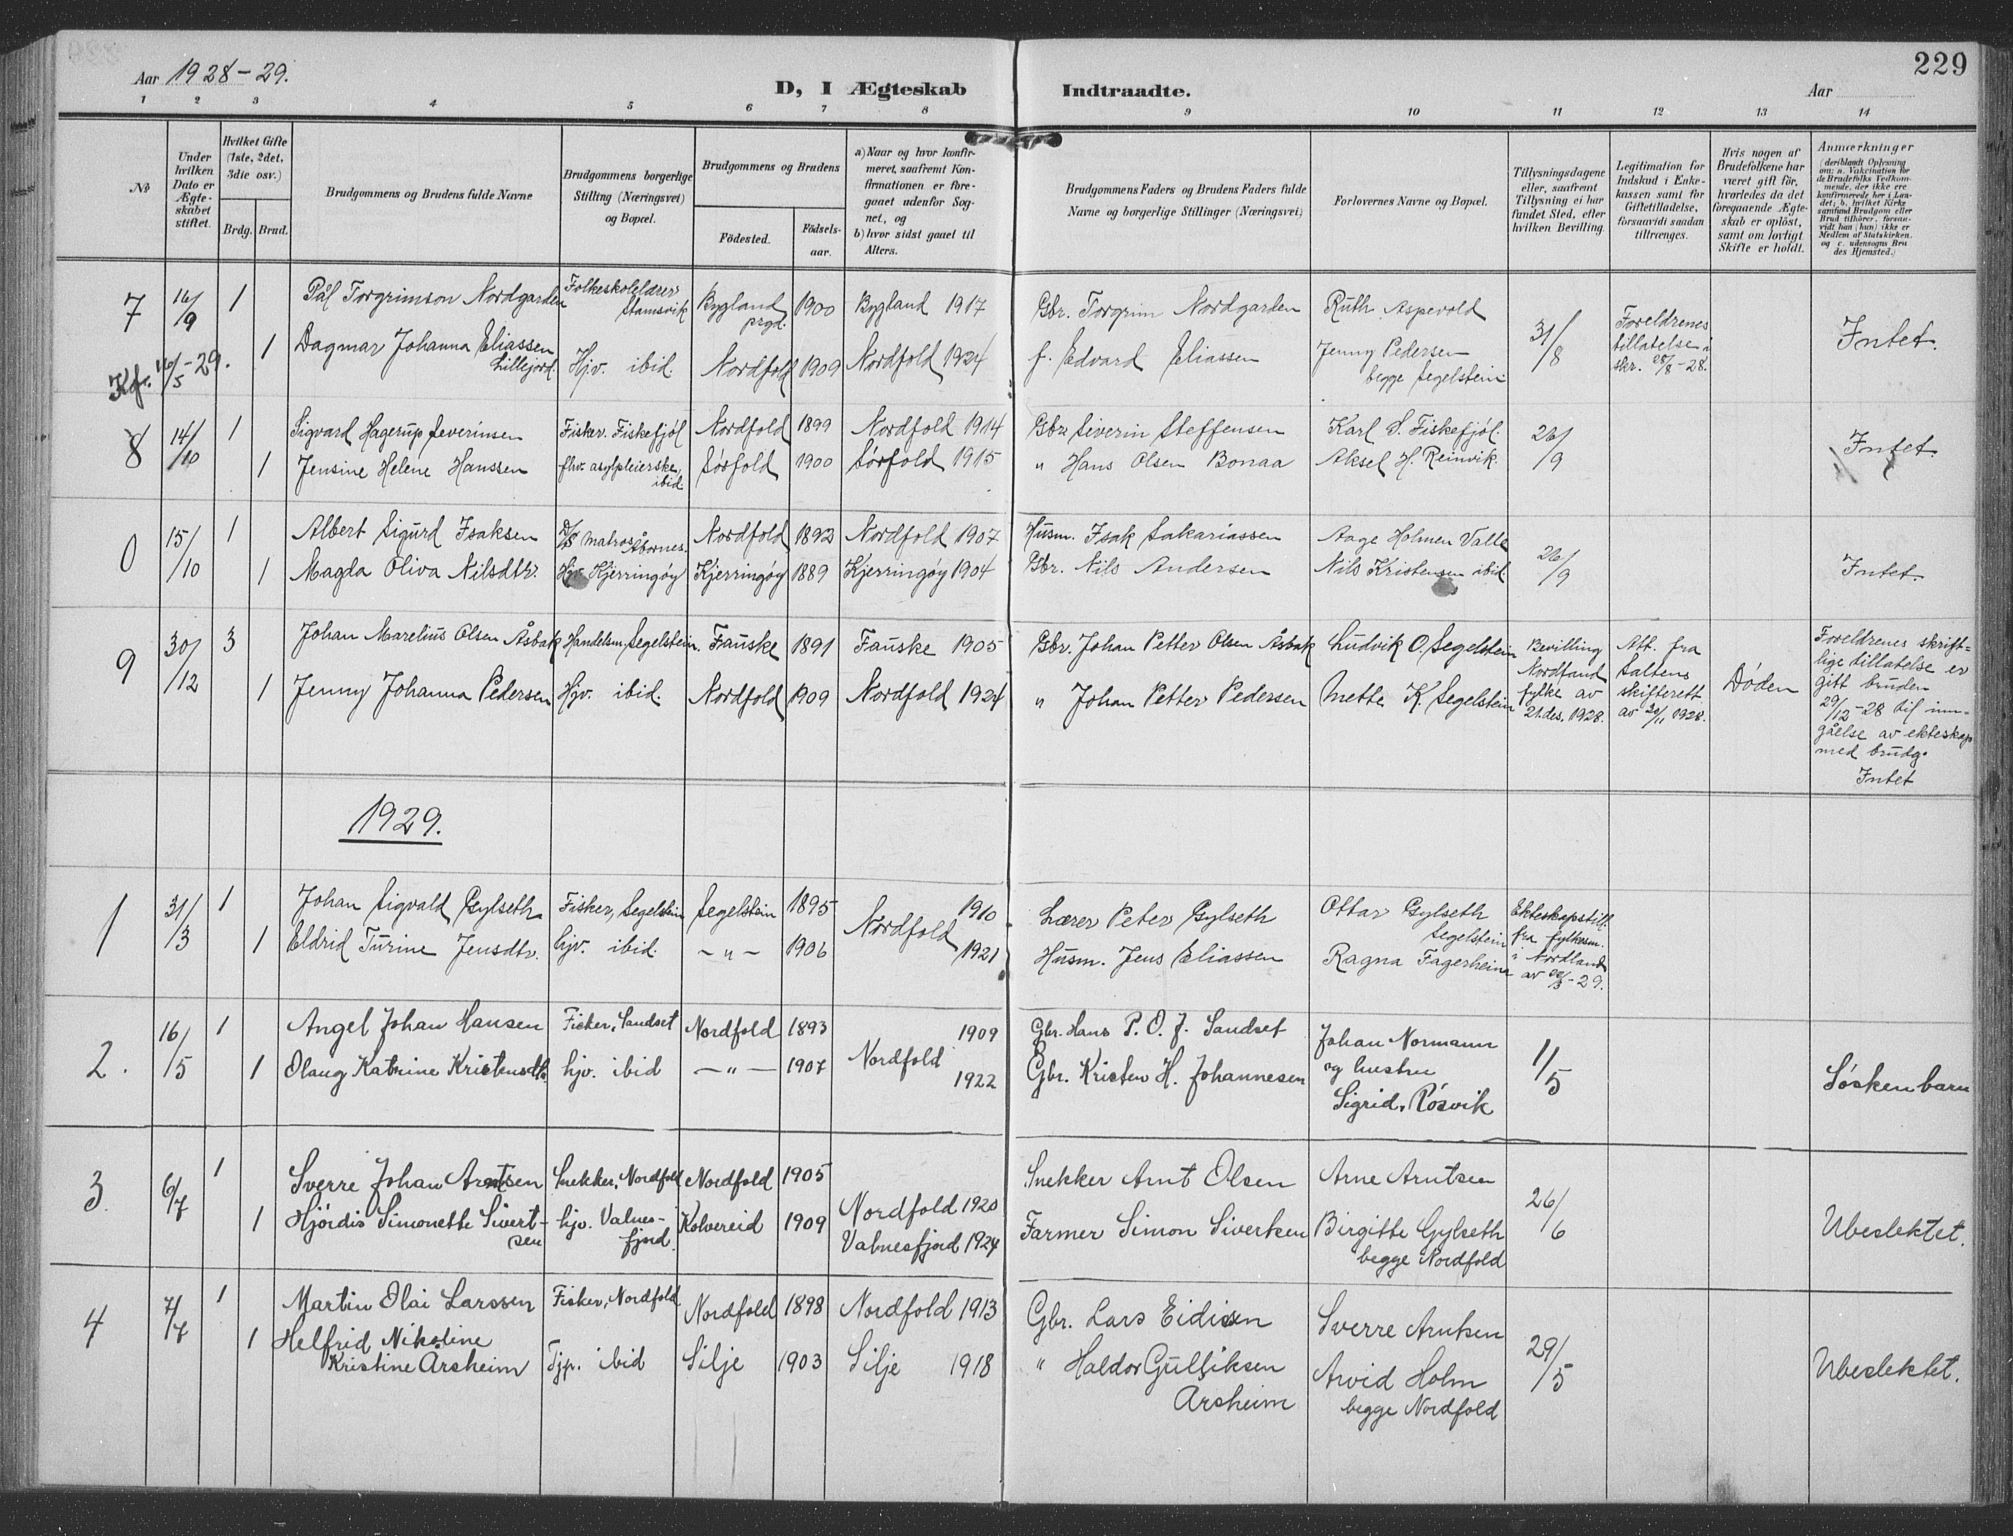 229
Aar 1928-29.
D, I Ægteskab Indtraadte.
Aar
1 2 3 4 5 6 7 8 9 10 11 12 13 14
№
Under hvilken Dato er Ægteskabet stiftet.
Hvilket Gifte (1ste, 2det, 3die osv.)
Brdg. Brud.
Brudgommens og Brudens fulde Navne
Brudgommens borgerlige Stilling (Næringsvei) og Bopæl.
Brudgommens og Brudens
Fødested. Fødselsaar.
a) Naar og hvor konfirmeret, saafremt Konfirmationen er foregaaet udenfor Sognet, og
b) hvor sidst gaaet til Alters.
Brudgommens Faders og Brudens Faders fulde Navne og borgerlige Stillinger (Næringsvei)
Forlovernes Navne og Bopæl.
Tillysningsdagene eller, saafremt Tillysning ei har fundet Sted, efter hvilken Bevilling.
Legitimation for Indskud i Enkekassen samt for Giftetilladelse, forsaavidt saadan tiltrænges.
Hvis nogen af Brudefolkene har været gift før, hvorledes da det foregaaende Ægteskab er opløst, samt om lovligt Skifte er holdt.
Anmærkninger
(deriblandt Oplysning om: a. Vakcination for de Brudefolks Vedkommende, der ikke ere konfirmerede her i Landet; b. hvilket Kirkesamfund Brudgom eller Brud tilhører, forsaavidt han (hun) ikke er Medlem af Statskirken, og c. udensogns Brudes Hjemsted.)
7 16/9 1 Pål Torgrimson Nordgarden Folkeskolelærer Stamsvik Bygland prgd. 1900 Bygland 1917 Gbr. Torgrim Nordgarden Ruth Aspevold 31/8 Foreldrenes tillatelse i skr. 28/8-28. Intet.
Kfr. 10/5-29. 1 Dagmar Johanna Eliassen Lillejord. Hjv. ibid. Nordfold 1909 Nordfold 1924 f. Edvard Eliassen Jenny Pedersen begge Segelstein
8 14/10 1 Sigvard Hagerup Severinsen Fisker. Fiskefjøl Nordfold 1899 Nordfold 1914 Gbr. Severin Steffensen Karl S. Fiskefjøl. 26/9 Intet.
1 Jensine Helene Hanssen fhv. asylpleierske, ibid. Sørfold 1900 Sørfold 1915 " Hans Olsen Bonaa Aksel H. Reinvik.
0 15/10 1 Albert Sigurd Isaksen D/S matros Åbornes. Nordfold 1892 Nordfold 1907 Husm. Isak Sakariassen Aage Holmen Valle 26/9
1 Magda Oliva Nilsdtr. Hjv. Kjerringøy Kjerringøy 1889 Kjerringøy 1904 Gbr. Nils Andersen Nils Kristensen ibid. Intet.
9 30/12 3 Johan Marelius Olsen Åsbak Handelsm. Segelstein. Fauske 1891 Fauske 1905 Gbr. Johan Petter Olsen Åsbak Ludvik O. Segelstein Bevilling Nordland fylke av 21. des. 1928. Att. fra Saltens skifterett av 20/11 1928. Døden Foreldrenes skriftlige tillatelse er gitt bruden 29/12-28 til inngåelse av ekteskap med brudg. Intet
1 Jenny Johanna Pedersen Hjv. ibid. Nordfold 1909 Nordfold 1924 " Johan Petter Pedersen Mette K. Segelstein
1929.
1 31/3 1 Johan Sigvald Gylseth Fisker, Segelstein Segelstein 1895 Nordfold 1910 Lærer Peter Gylseth Ottar Gylseth Segelstein Ekteskapstill. fra fylkesm. i Nordland av 20/3-29.
1 Eldrid Turine Jensdtr. hjv. ibid. -"- 1906 1921 Husm. Jens Eliassen Ragna Fagerheim
2. 16/5 1 Angel Johan Hansen Fisker, Sandset Nordfold 1893 Nordfold 1909 Gbr. Hans P. O. J. Sandset Johan Normann og hustru Sigrid, Røsvik 1/5 Søskenbarn
1 Olaug Katrine Kristensdtr. hjv. ibid -"- 1907 1922 Gbr. Kristen H. Johannesen
3. 6/7 1 Sverre Johan Arntsen Snekker, Nordfold Nordfold 1905 Nordfold 1920 Snekker Arnt Olsen Arne Arntsen 26/6 Ubeslektet.
1 Hjørdis Simonette Sivertsen hjv. Valnesfjord. Kolvereid 1909 Valnesfjord 1924 Farmer Simon Sivertsen Birgitte Gylseth begge Nordfold
4 7/7 1 Martin Olai Larssen Fisker, Nordfold Nordfold 1898 Nordfold 1913 Gbr. Lars Eidissen Sverre Arntsen 29/5 Ubeslektet.
1 Helfrid Nikoline Kristine Arsheim Tjp. ibid Silje 1903 Silje 1918 " Haldor Gulliksen Arsheim Arvid Holm begge Nordfold